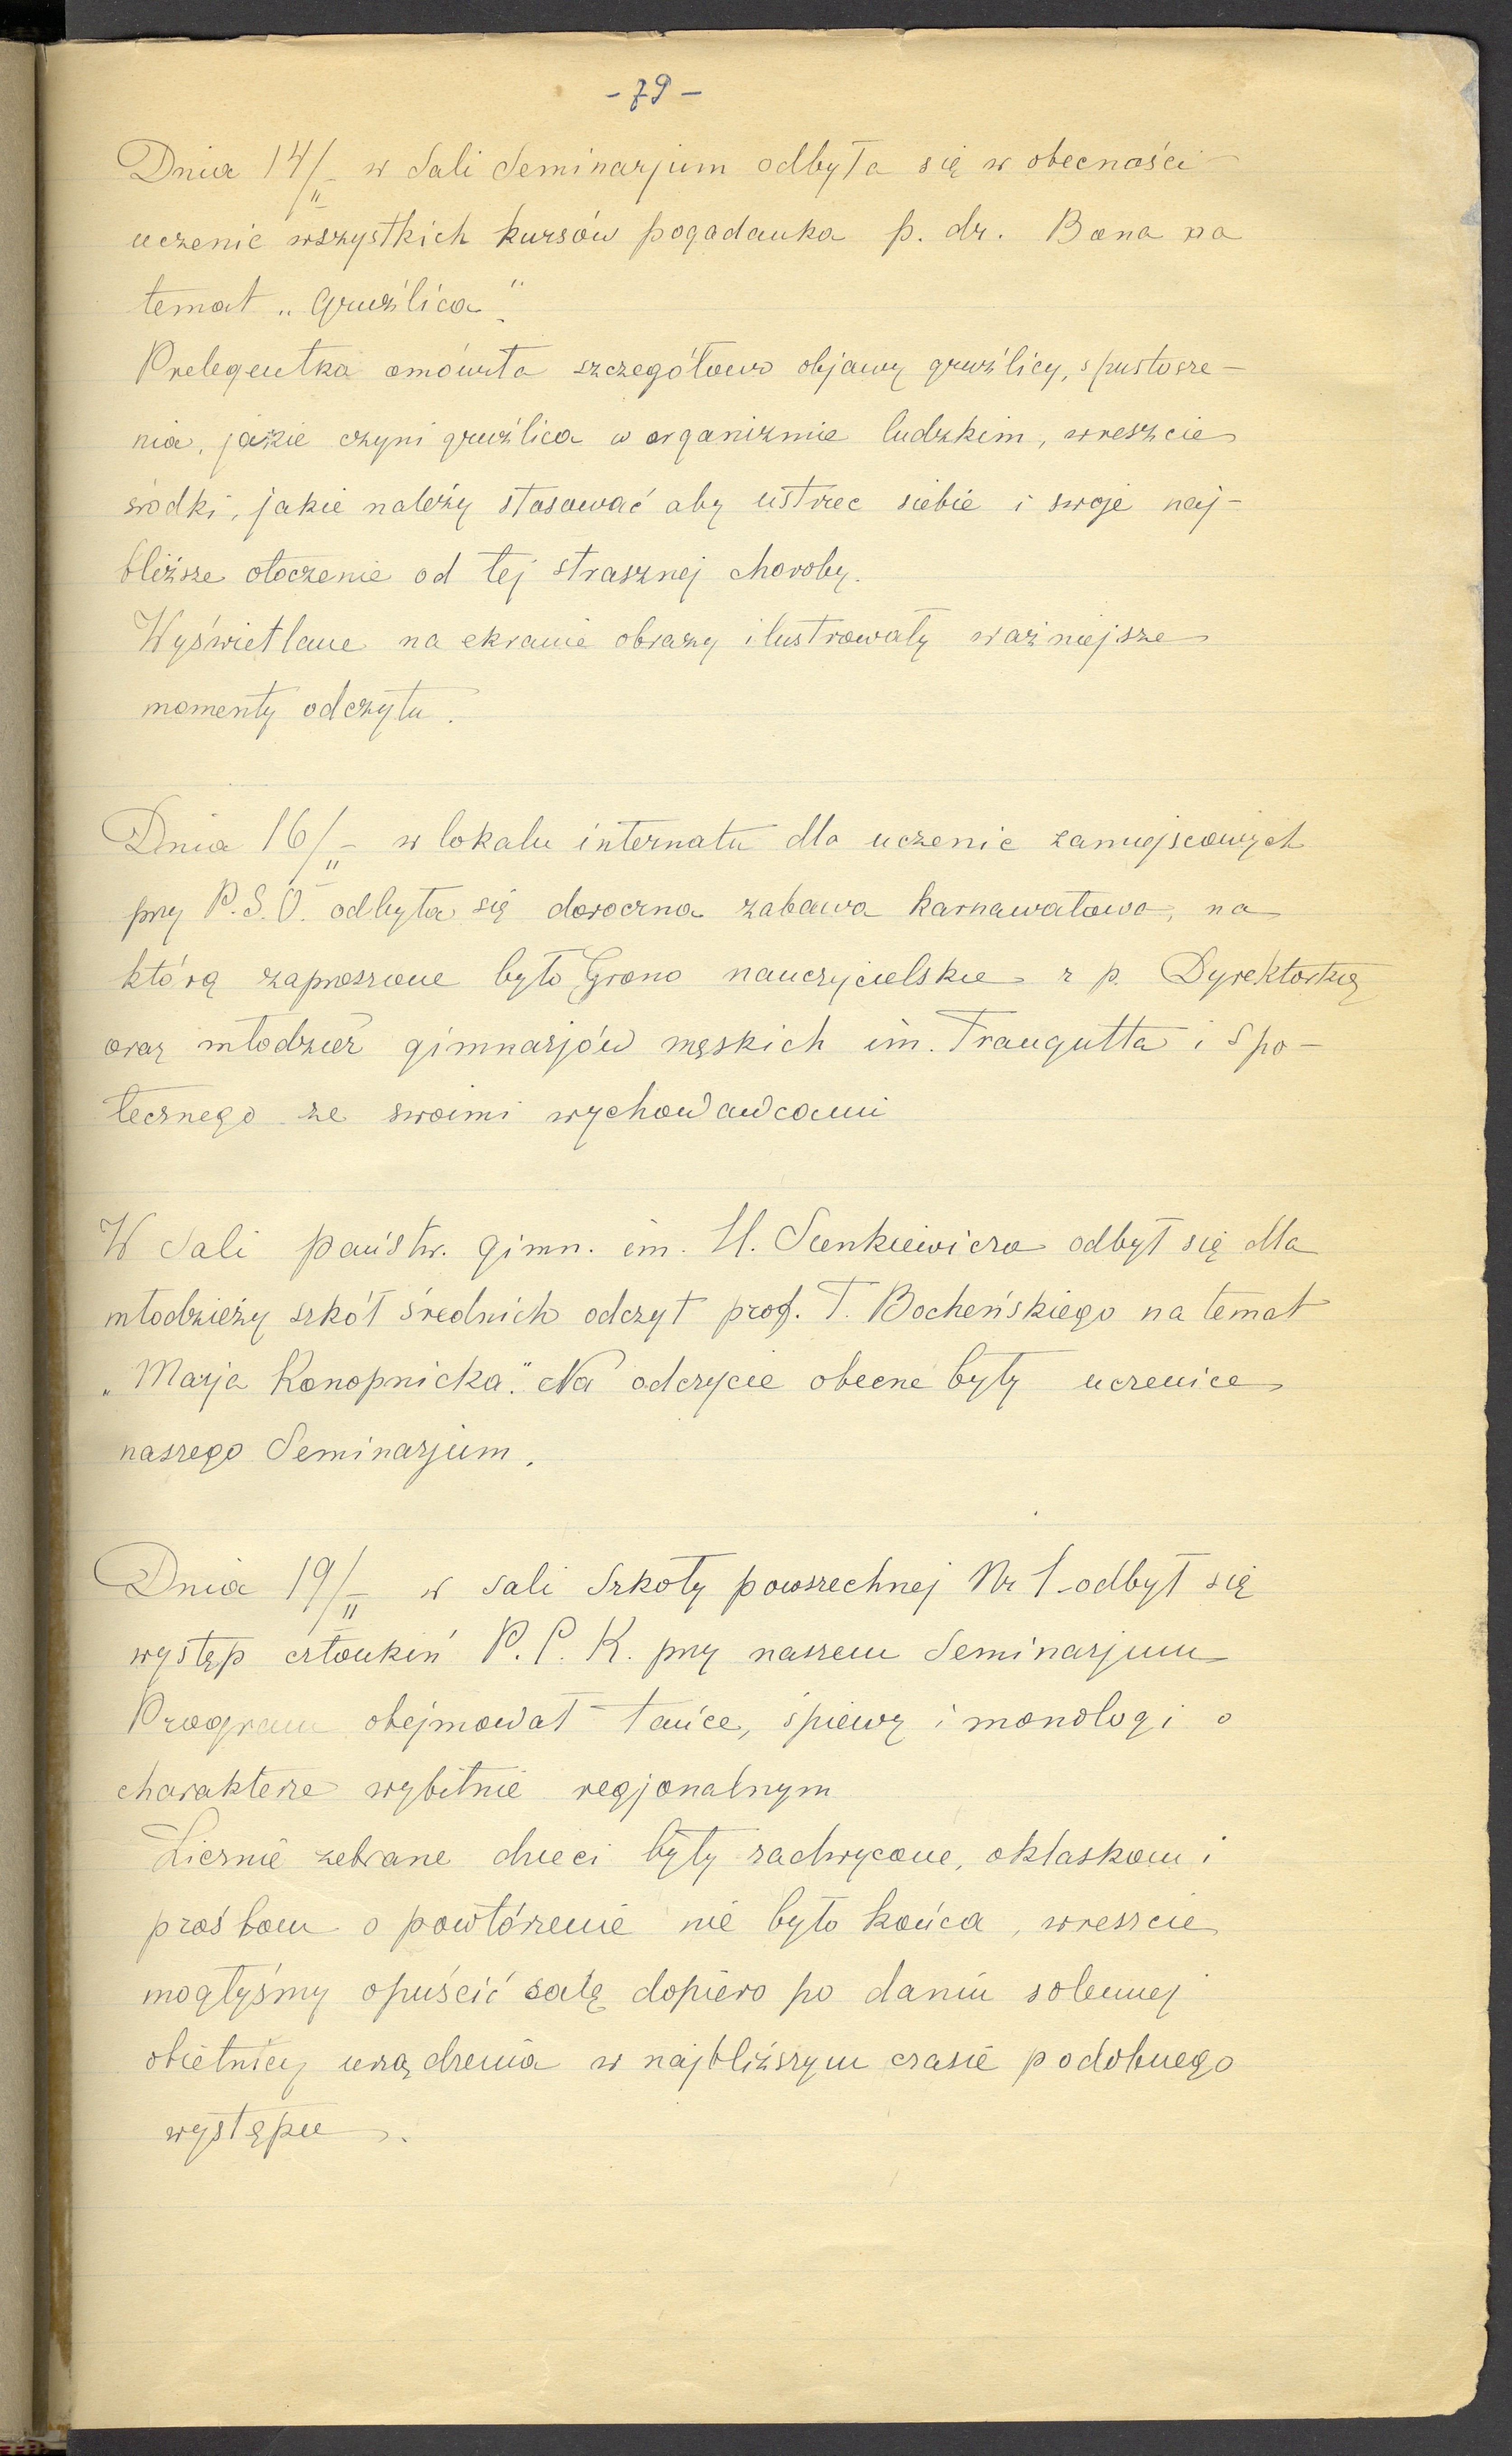 - 79 -
Dnia 14/II w Sali Seminarjum odbyła się w obecności
uczenic wszystkich kursów pogadanka p. dr. Bona na
temat „Gruźlica".
Prelegentka omówiła szczegółowo objawy gruźlicy, spustosze-
nia, jakie czyni gruźlica w organizmie ludzkim, wreszcie
środki, jakie należy stosować aby ustrzec siebie i swoje naj-
bliższe otoczenie od tej strasznej choroby.
Wyświetlane na ekranie obrazy ilustrowały ważniejsze
momenty odczytu.
Dnia 16/II w lokalu internatu dla uczenic zamiejscowych
przy P.S.O. odbyła się doroczna zabawa karnawałowa, na
którą zaproszone było Grono nauczycielskie z p. Dyrektorką
oraz młodzież gimnazjów męskich im. Traugutta i Spo-
łecznego ze swoimi wychowawcami
W Sali państw. gimn. im. H. Sienkiewicza odbył się dla
młodzieży szkół średnich odczyt prof. T. Bocheńskiego na temat
„Marja Konopnicka." Na odczycie obecne były uczenice
naszego Seminarjum.
Dnia 19/II w sali Szkoły powszechnej Nr 1 odbył się
występ członkiń P.C.K. przy naszem Seminarjum
Program obejmował tańce, śpiewy i monologi o
charakterze wybitnie regjonalnym
Licznie zebrane dzieci były zachwycone, oklaskom i
prośbom o powtórzenie nie było końca, wreszcie
mogłyśmy opuścić salę dopiero po daniu solennej
obietnicy urządzenia w najbliższym czasie podobnego
występu.